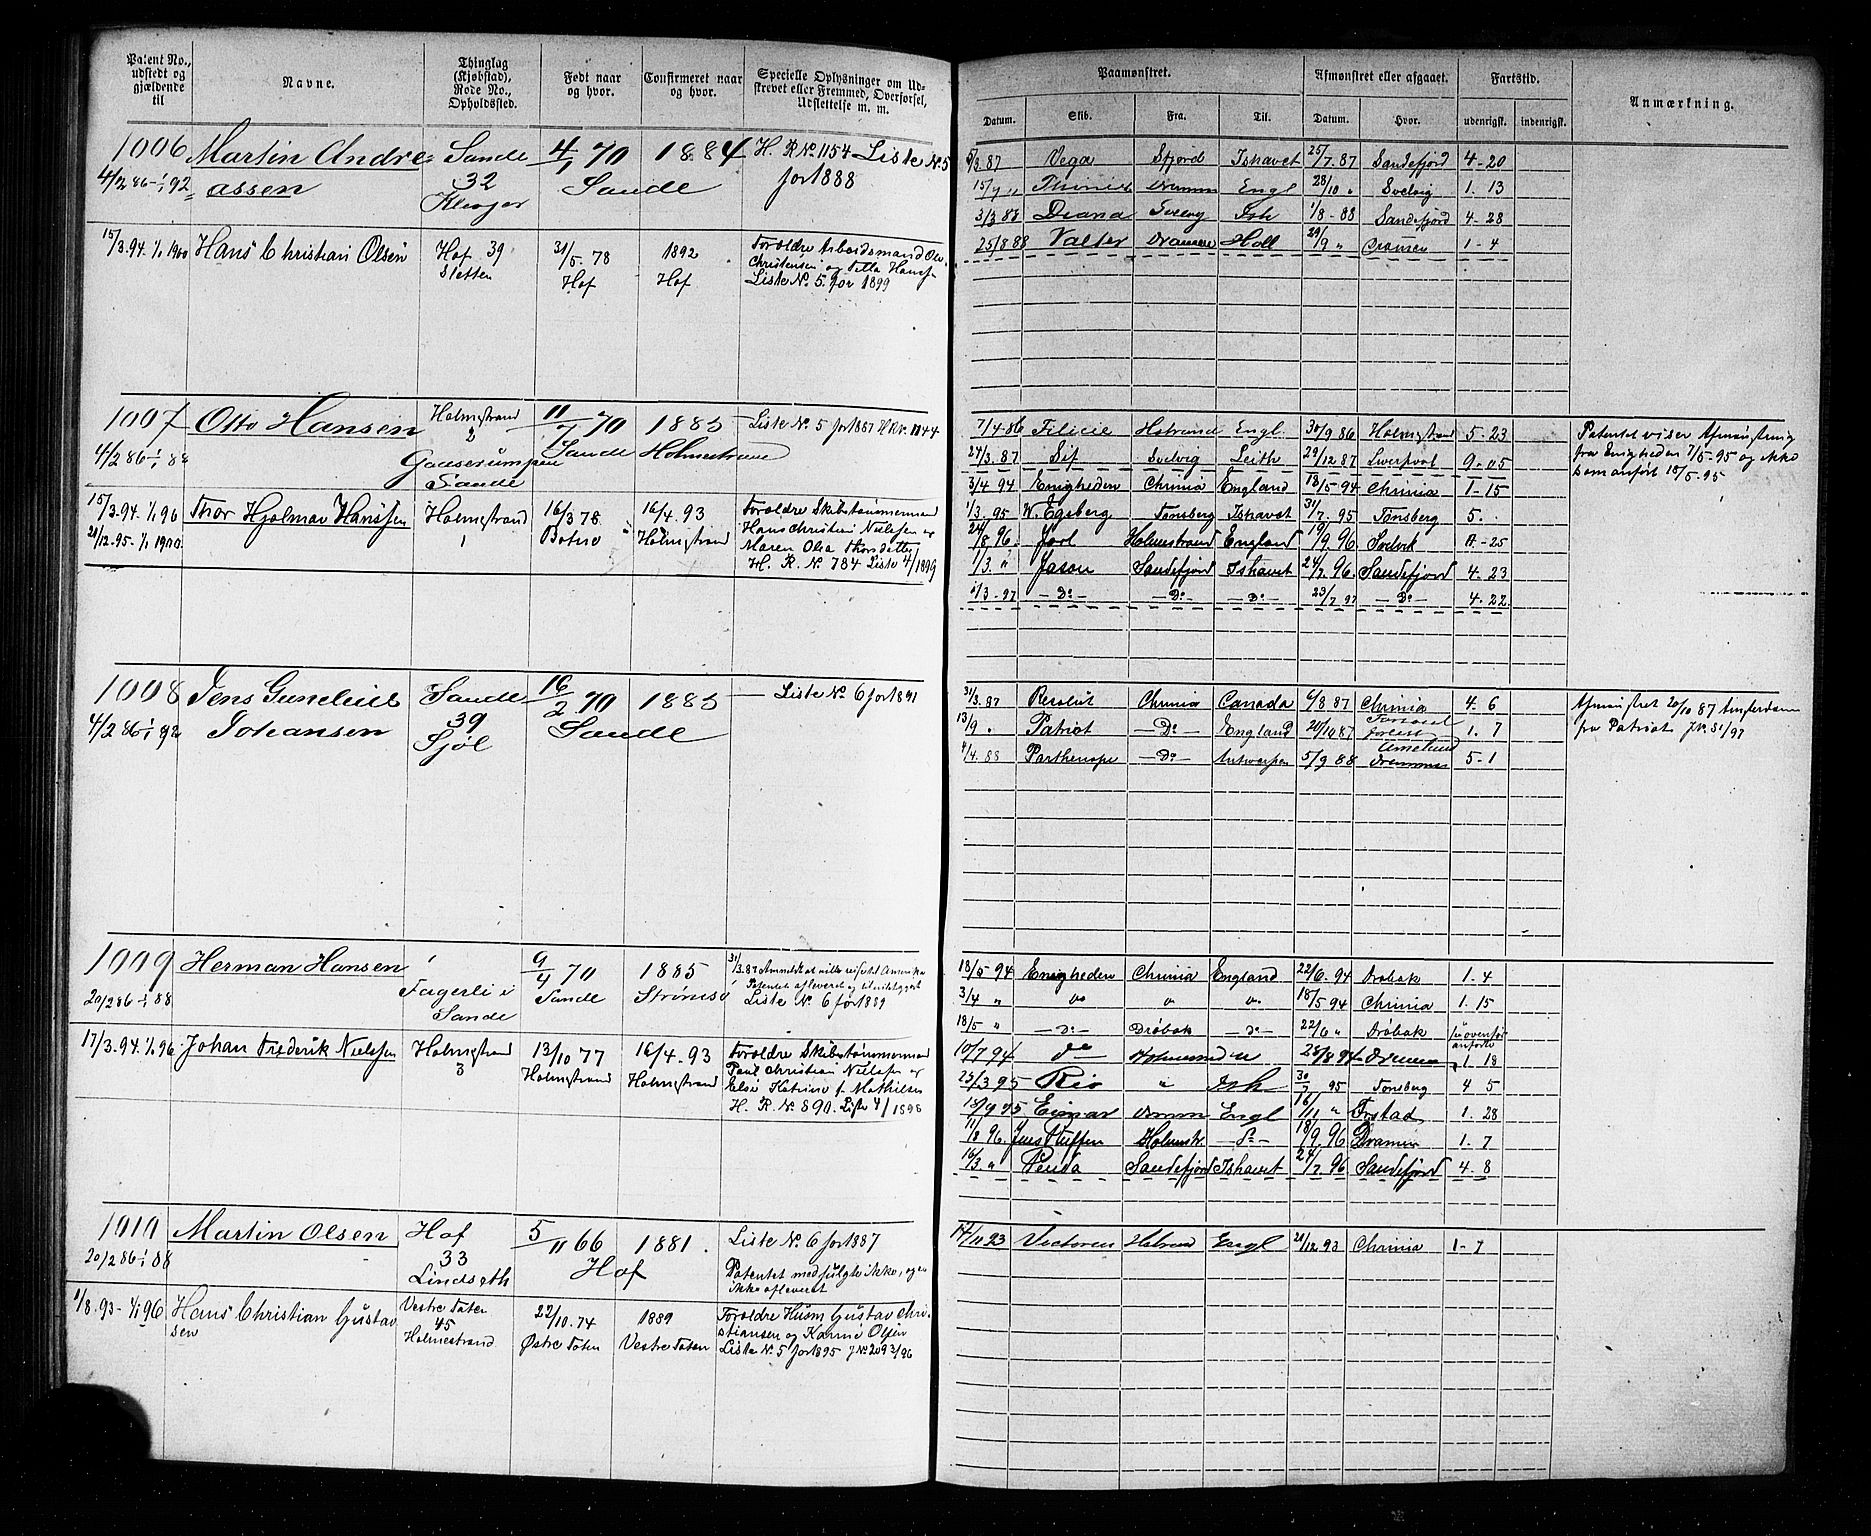 Patent No., udstedt og gjældende til
Navne.
Thinglag (Kjøbstad), Rode No., Opholdssted.
Født naar og hvor.
Confirmeret naar og hvor.
Specielle Oplysninger om Udskrevet eller Fremmed, Overførsel, Udslettelse m. m.
1006 Martin Andre- Sande 4/ 70 1884 H. R No. 1154 Liste No 5
4/2 86-1/1 92 assen 32 Sande for 1888
15/3.94. 1/1 1900 Hans Christian Olsen Hof 39 31/5. 78 1892 Forældre Arbeidsmand Ole
Sletten Hof Hof Christensen og
Liste No. 5. for 1899
1007 Otto Hansen Holmestrand 11/7 70 1885 Liste No. 5 for 1887 H R No. 1844
4/2 86-1/1 88 2 Sande Holmestrand
Gaaserumpen
Sande
15/3.94. 1/1 96 Thor Hjalmar Hanssen Holmestrand 16/3 78. 16/4. 93 Forældre Skibstømmermand
21/12.95. 1/1 1900. 1 Botne Holmestrand Hans Christian Nielsen og
Maren Olea Thorsdatter
H. R. No 784 Liste 4/1899
1008 Jens Gunelius Sande 16/2 70 1885 — Liste No. 6 for 1891
4/2 86-1/1 92 Johansen 39 Sande
Sjøl
1009 Herman Hansen 9/4 70 1885 31/3.87 Anmeldt at ville reise til Amerika
20/2 86-1/1 88 Fagerli i Sande Strømsø Patentet afleveret og
Sande Liste No. 6 for 1889
17/3.94. 1/1 96 Johan Frederik Nielsen Holmestrand 13/10 77 16/4. 93 Forældre Skibstømmermand
3 Holmestrand Holmestrand Paul Christian Nielsen og
Else Katrine f. Mathilsen
H. R. No 890. Liste 4/1898
1010 Martin Olsen Hof 5/11 66 1881. Liste No. 6 for 1887
20/2 86-1/1 88 33 Hof
Lindseth Patentet medfulgte ikke, og er
ikke afleveret
1/8.93- 1/1 96 Hans Christian Gustav Vestre Toten 22/10. 74 1889 Forældre Husm Gustav Chri-
sen 45 Østre Toten Vestre Toten stiansen og Karine Olsen
Holmestrand Liste No. 5 for 1895 J No 209 3/96
Paamønstret.
Afmønstret eller afgaaet.
Fartstid.
Anmærkning.
Datum. Skib. Fra. Til. Datum. Hvor. udenrigsk. indenrigsk.
/3.87 Vega Sfjord Ishavet 25/7.87 Sandefjord 4-20
15/9 " Dramm Engl 28/10 " Svelvig 1. 13
3/3 88 Diana Svelvig Ish 1/8-88 Sandefjord 4-28
25/8 88 Valter Drammen Holl 29/9 " Dramen 1-4
7/4 86 Filicie Hstrand Engl 30/9 86 Holmestrand 5-23 Patentet viser Afmønstring
27/3. 87 Sif Svelvig Leith 29/12 87 Liverpool 9-05 fra Enigheden 7/5-95 og ikke
3/4 94 Enigheden Chrinia England 18/5-94 Chrinia 1-15 som anført 18/5-95
1/3. 95 W. Egeberg Tønsberg Ishavet 31/7. 95 Tønsberg 5.
24/8 96. Jarl Holmestrand England 19/9. 96 Svelvik -25
1/3. " Jason Sandefjord Ishavet 24/7. 96. Sandefjord 4. 23
1/3-97 —Do— —Do— —Do— 23/7 97 —Do— 4. 22
31/3. 87 Resolut Chrinia Canada 6/8 87 Chrinia 4. 6 Afmønstret 20/10 87 Amsterdam
13/9 " Patriot —Do— England 20/10 87 forlist 1. 7 fra Patriot J No. 51/97
4/4. 88 Parthenope —Do— Antwerpen 5/9 88 Drammen 5-1
18/5 94 Enigheden Chrinia England 22/6. 94 Drøbak 1. 4
3/4 " " " " 18/5 94 Chrinia 1. 15
18/5 " —Do— Drøbak —Do— 22/6 " Drøbak ovenfor anførte
10/7 94 do Holmestrand 28/8 94 Drammen 1. 18
25/3 95 Rio " Ish 30/7 95 Tønsberg 4 5
18/9 95 Einar Dramm Engl 16/11 " Frstad 1. 28
11/8 96. Jens Steffen Holmestr —Do— 18/9. 96 Dramen 1. 7
16/3. " Penda Sandefjord Ishavet 24/7. 96 Sandefjord 4. 8
17/11 93 Victoria Hstrand Engl 21/12 93 Chrinia 1-7